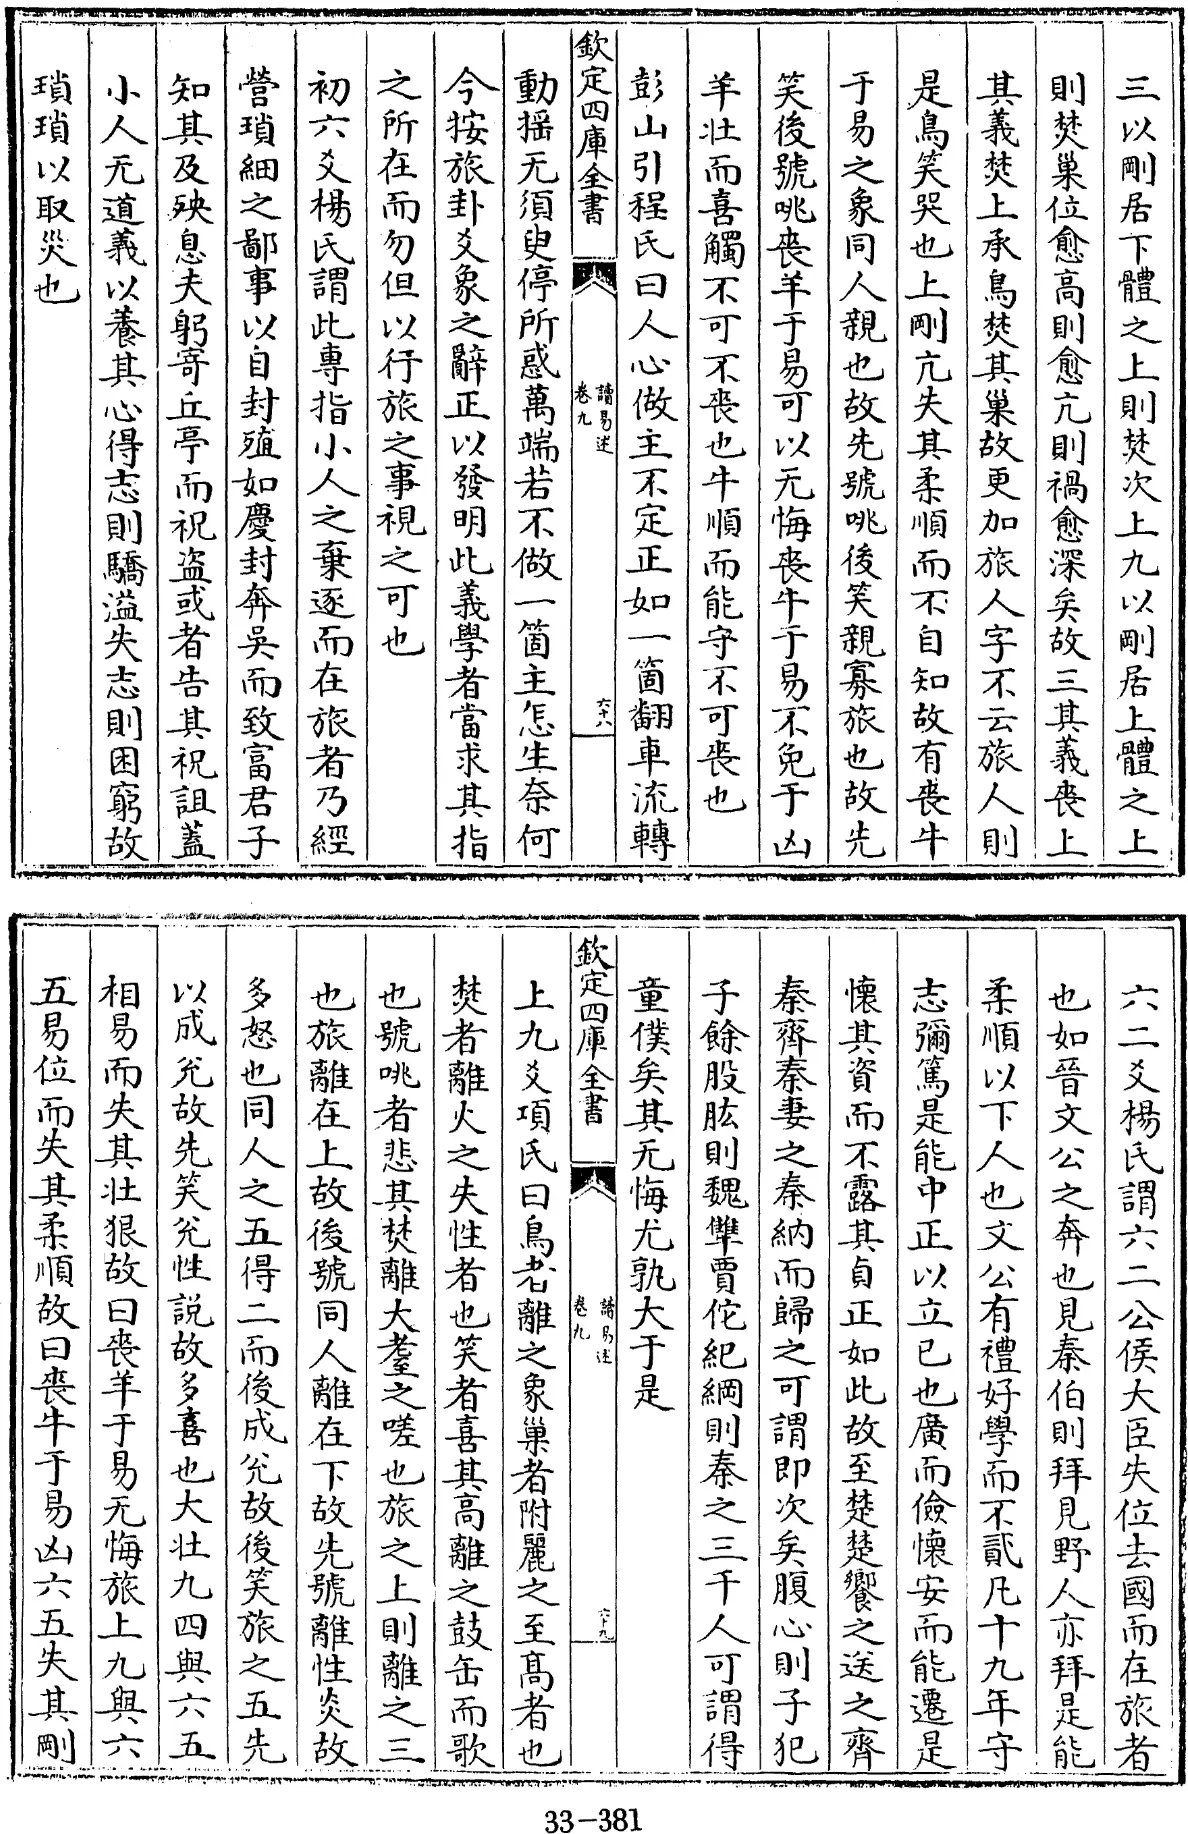 三以剛居下體之上則焚次上九以剛居上體之上
則焚巢位愈高則愈亢則禍愈深矣故三其義喪上
其義焚上承鳥焚其巢故更加旅人字不云旅人則
是鳥笑哭也上剛亢失其柔順而不自知故有喪牛
于易之象同人親也故先號咷後笑親寡旅也故先
笑後號咷喪羊于易可以无悔喪牛于易不免于凶
羊壯而喜觸不可不喪也牛順而能守不可喪也
彭山引程氏曰人心做主不定正如一箇翻車流轉
欽定四庫全書
讀易述
卷九
六十八
動搖无須臾停所惑萬端若不做一箇主怎生奈何
今按旅卦爻象之辭正以發明此義學者當求其指
之所在而勿但以行旅之事視之可也
初六爻楊氏謂此專指小人之棄逐而在旅者乃經
營瑣細之鄙事以自封殖如慶封奔吳而致富君子
知其及殃息夫躬寄丘亭而祝盜或者告其祝詛蓋
小人无道義以養其心得志則驕溢失志則困窮故
瑣瑣以取災也
六二爻楊氏謂六二公侯大臣失位去國而在旅者
也如晉文公之奔也見秦伯則拜見野人亦拜是能
柔順以下人也文公有禮好學而不貳凡十九年守
志彌篤是能中正以立已也廣而儉懷安而能遷是
懷其資而不露其貞正如此故至楚楚饗之送之齊
秦齊秦妻之秦納而歸之可謂即次矣腹心則子犯
子餘股肱則魏犫賈佗紀綱則秦之三千人可謂得
童僕矣其无悔尤孰大于是
欽定四庫全書
讀易述
卷九
六十九
上九爻項氏曰鳥者離之象巢者附麗之至高者也
焚者離火之失性者也笑者喜其高離之鼓缶而歌
也號咷者悲其焚離大耋之嗟也旅之上則離之三
也旅離在上故後號同人離在下故先號離性炎故
多怒也同人之五得二而後成兊故後笑旅之五先
以成兊故先笑兊性説故多喜也大壯九四與六五
相易而失其壯狠故曰喪羊于易无悔旅上九與六
五易位而失其柔順故曰喪牛于易凶六五失其剛
33-381